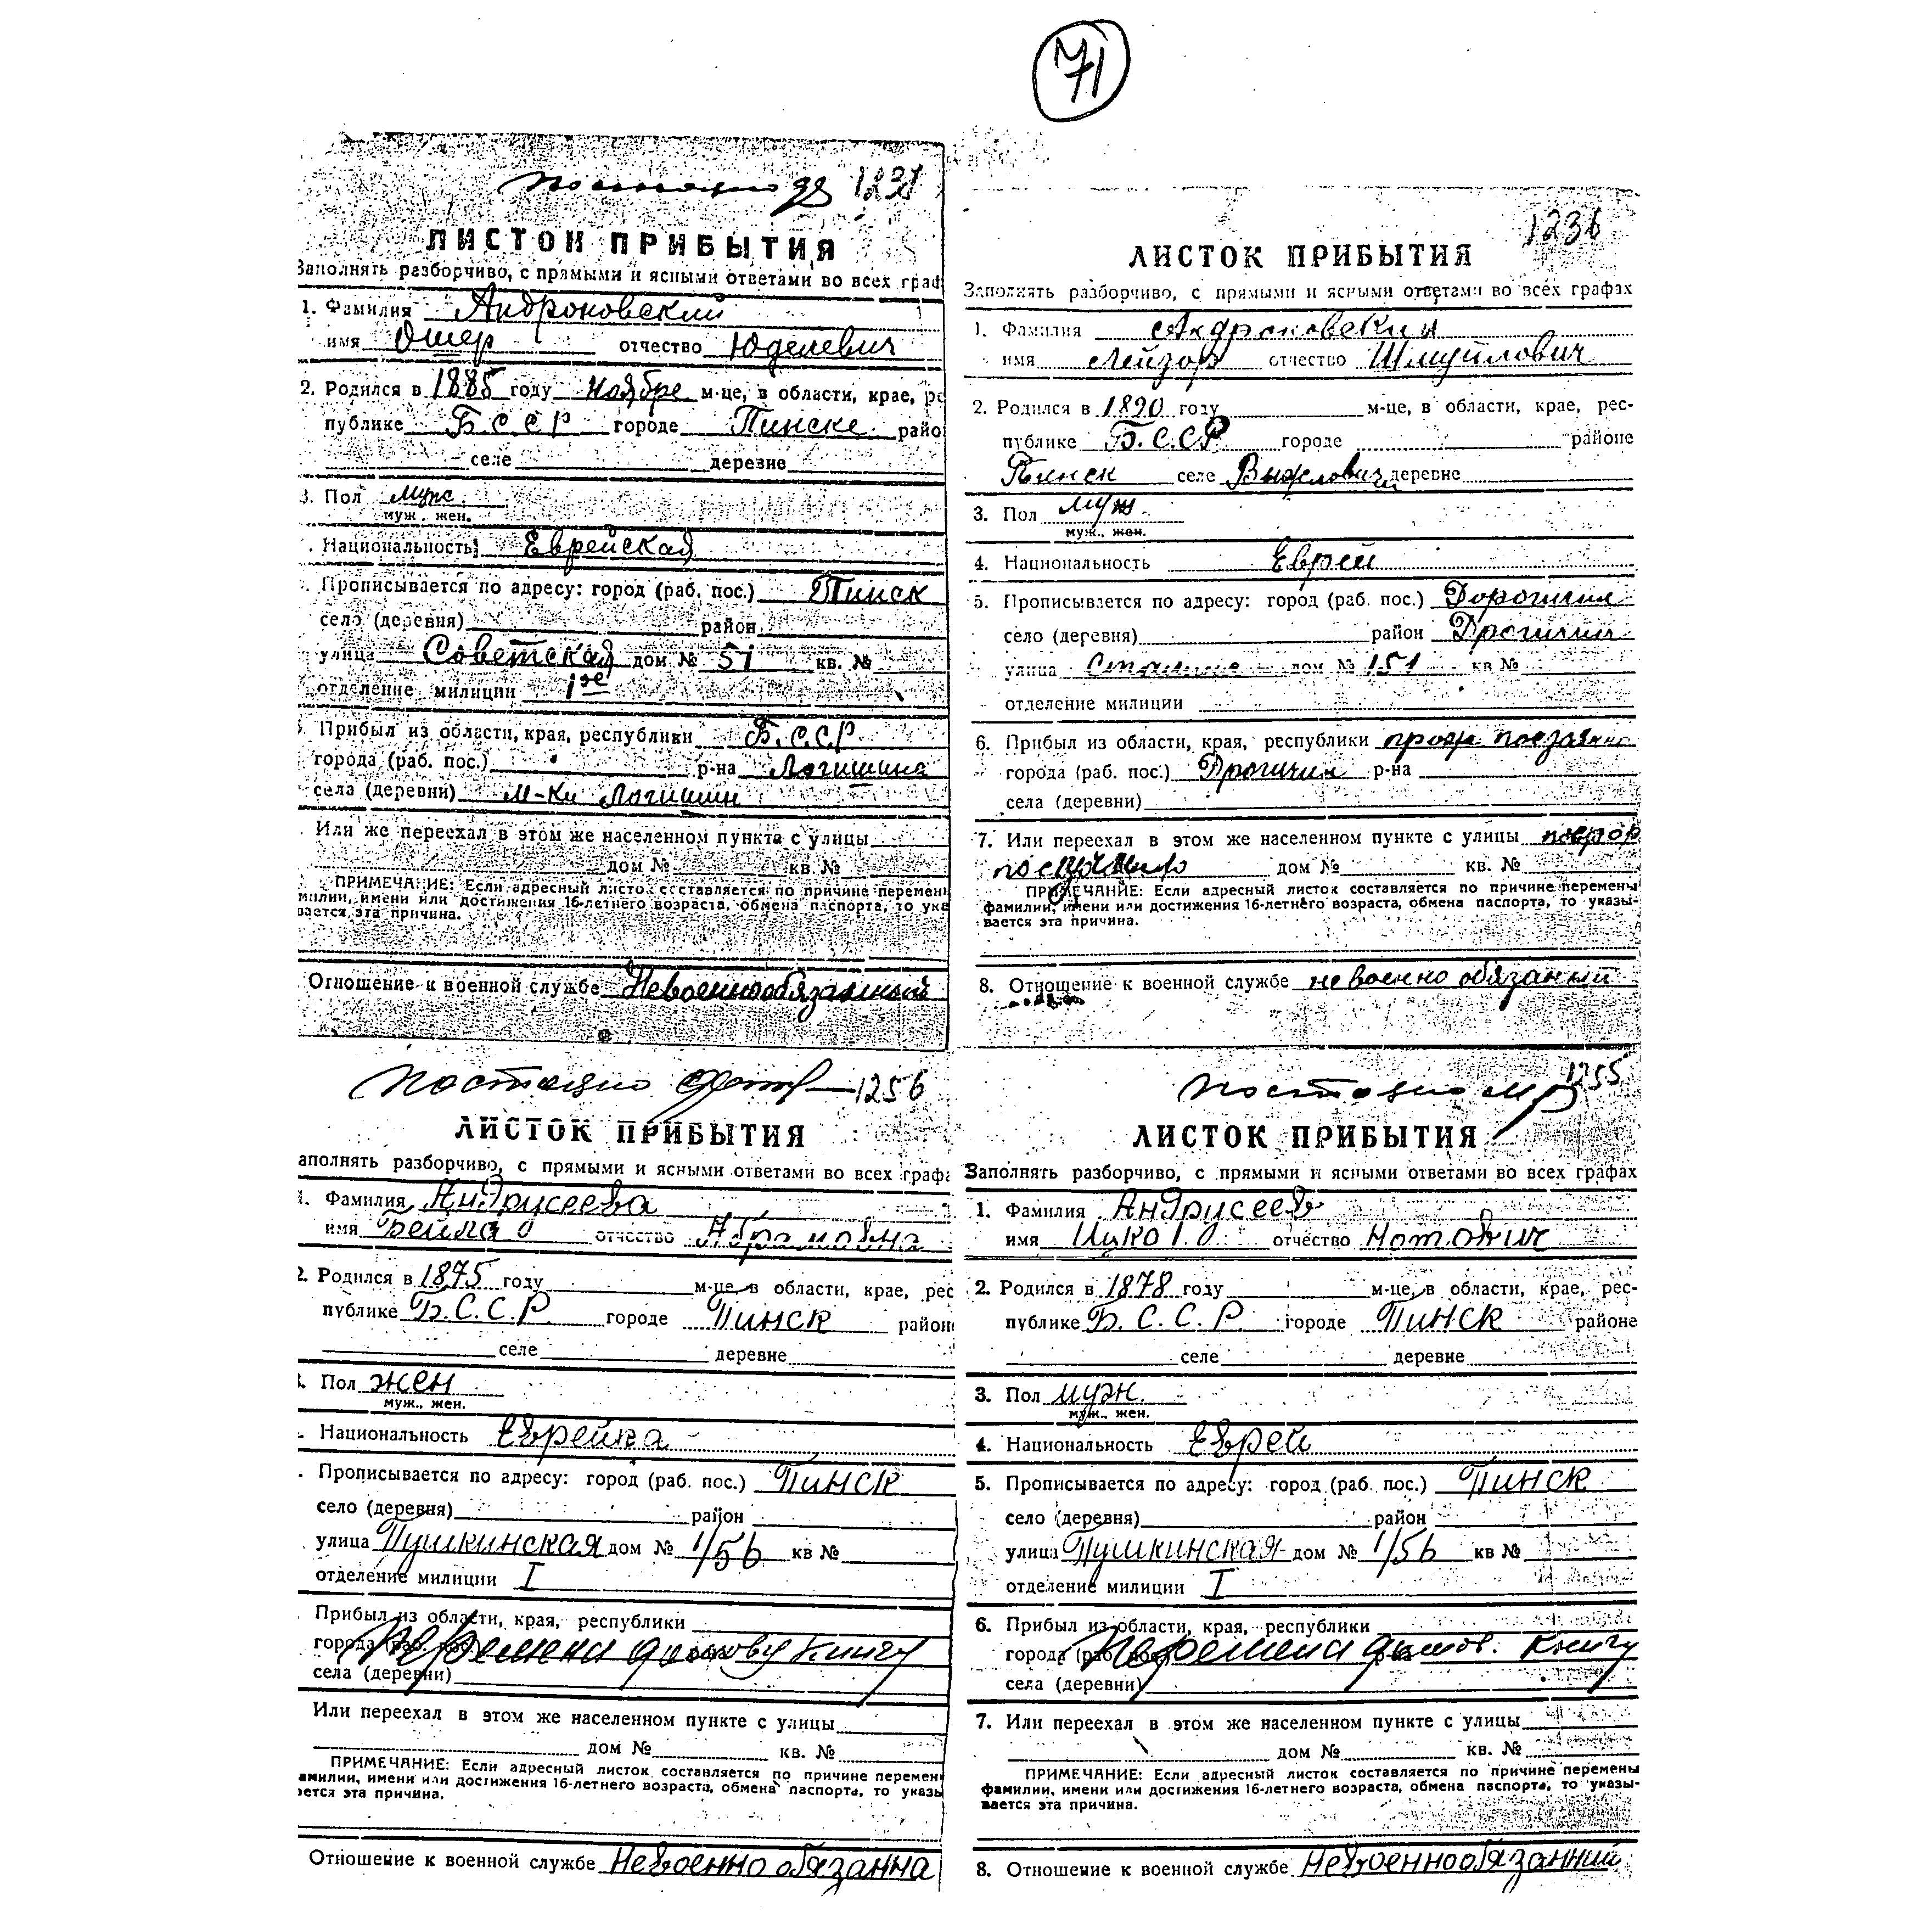 71
постоянно 1231
ЛИСТОК ПРИБЫТИЯ
Заполнять разборчиво, с прямыми и ясными ответами во всех граф
1. Фамилия Андроновский
имя Ошер отчество Юделевич
2. Родился в 1885 году Ноябре м-це, в области, крае, ре
публике Б.С.С.Р городе Пинске райо
селе деревне
3. Пол муж.
муж., жен.
. Национальность Еврейская
. Прописывается по адресу: город (раб. пос.) Пинск
село (деревня) район
улица Советская дом № 51 кв. №
отделение милиции 1ое
Прибыл из области, края, республики Б.С.С.Р
города (раб. пос.) р-на Логишина
села (деревни) м-ки Логишин
. Или же переехал в этом же населенном пункте с улицы
дом № кв. №
ПРИМЕЧАНИЕ: Если адресный листок составляется по причине перемены
милии, имени или достижения 16-летнего возраста, обмена паспорта, то ука
вается эта причина.
Отношение к военной службе Невоеннообязанный
1236
ЛИСТОК ПРИБЫТИЯ
Заполнять разборчиво, с прямыми и ясными ответами во всех графах
1. Фамилия Андроновский
имя Лейзор отчество Шмуйлович
2. Родился в 1890 году м-це, в области, крае, рес-
публике Б.С.СР городе районе
Пинск селе Выжловичи деревне
3. Пол муж.
муж., жен.
4. Национальность Еврей
5. Прописывается по адресу: город (раб. пос.) Дорогичин
село (деревня) район Дрогичин
улица дом № 151 кв №
отделение милиции
6. Прибыл из области, края, республики
города (раб. пос.) Дрогичин р-на
села (деревни)
7. Или переехал в этом же населенном пункте с улицы
дом № кв. №
ПРИМЕЧАНИЕ: Если адресный листок составляется по причине перемены
фамилии, имени или достижения 16-летнего возраста, обмена паспорта, то указы-
вается эта причина.
8. Отношение к военной службе невоенно обязаный
постоянно 1256
ЛИСТОК ПРИБЫТИЯ
аполнять разборчиво, с прямыми и ясными ответами во всех графа
1. Фамилия Андрусеева
имя Бейла отчество Абрамовна
2. Родился в 1875 году м-це, в области, крае, рес
публике Б.С.С.Р. городе Пинск районе
селе деревне
3. Пол жен
муж., жен.
. Национальность Еврейка
. Прописывается по адресу: город (раб. пос.) Пинск
село (деревня) район
улица Пушкинская дом № 1/56 кв №
отделение милиции I
Прибыл из области, края, республики
города (раб. пос.) Перемена домову книгу
села (деревни)
Или переехал в этом же населенном пункте с улицы
дом № кв. №
ПРИМЕЧАНИЕ: Если адресный листок составляется по причине перемен
амилии, имени или достижения 16-летнего возраста, обмена паспорта, то указы
ается эта причина.
Отношение к военной службе Невоеннообязанна
постоянно 1255
ЛИСТОК ПРИБЫТИЯ
Заполнять разборчиво, с прямыми и ясными ответами во всех графах
1. Фамилия Андрусеев
имя отчество Нотович
2. Родился в 1878 году м-це, в области, крае, рес-
публике Б.С.С.Р. городе Пинск районе
селе деревне
3. Пол муж.
муж., жен.
4. Национальность Еврей
5. Прописывается по адресу: город (раб. пос.) Пинск
село (деревня) район
улица Пушкинская дом № 1/56 кв №
отделение милиции I
6. Прибыл из области, края, республики
города (раб. пос.) Перемена домов. книгу
села (деревни)
7. Или переехал в этом же населенном пункте с улицы
дом № кв. №
ПРИМЕЧАНИЕ: Если адресный листок составляется по причине перемены
фамилии, имени или достижения 16-летнего возраста, обмена паспорта, то указы-
вается эта причина.
8. Отношение к военной службе Невоеннообязанный